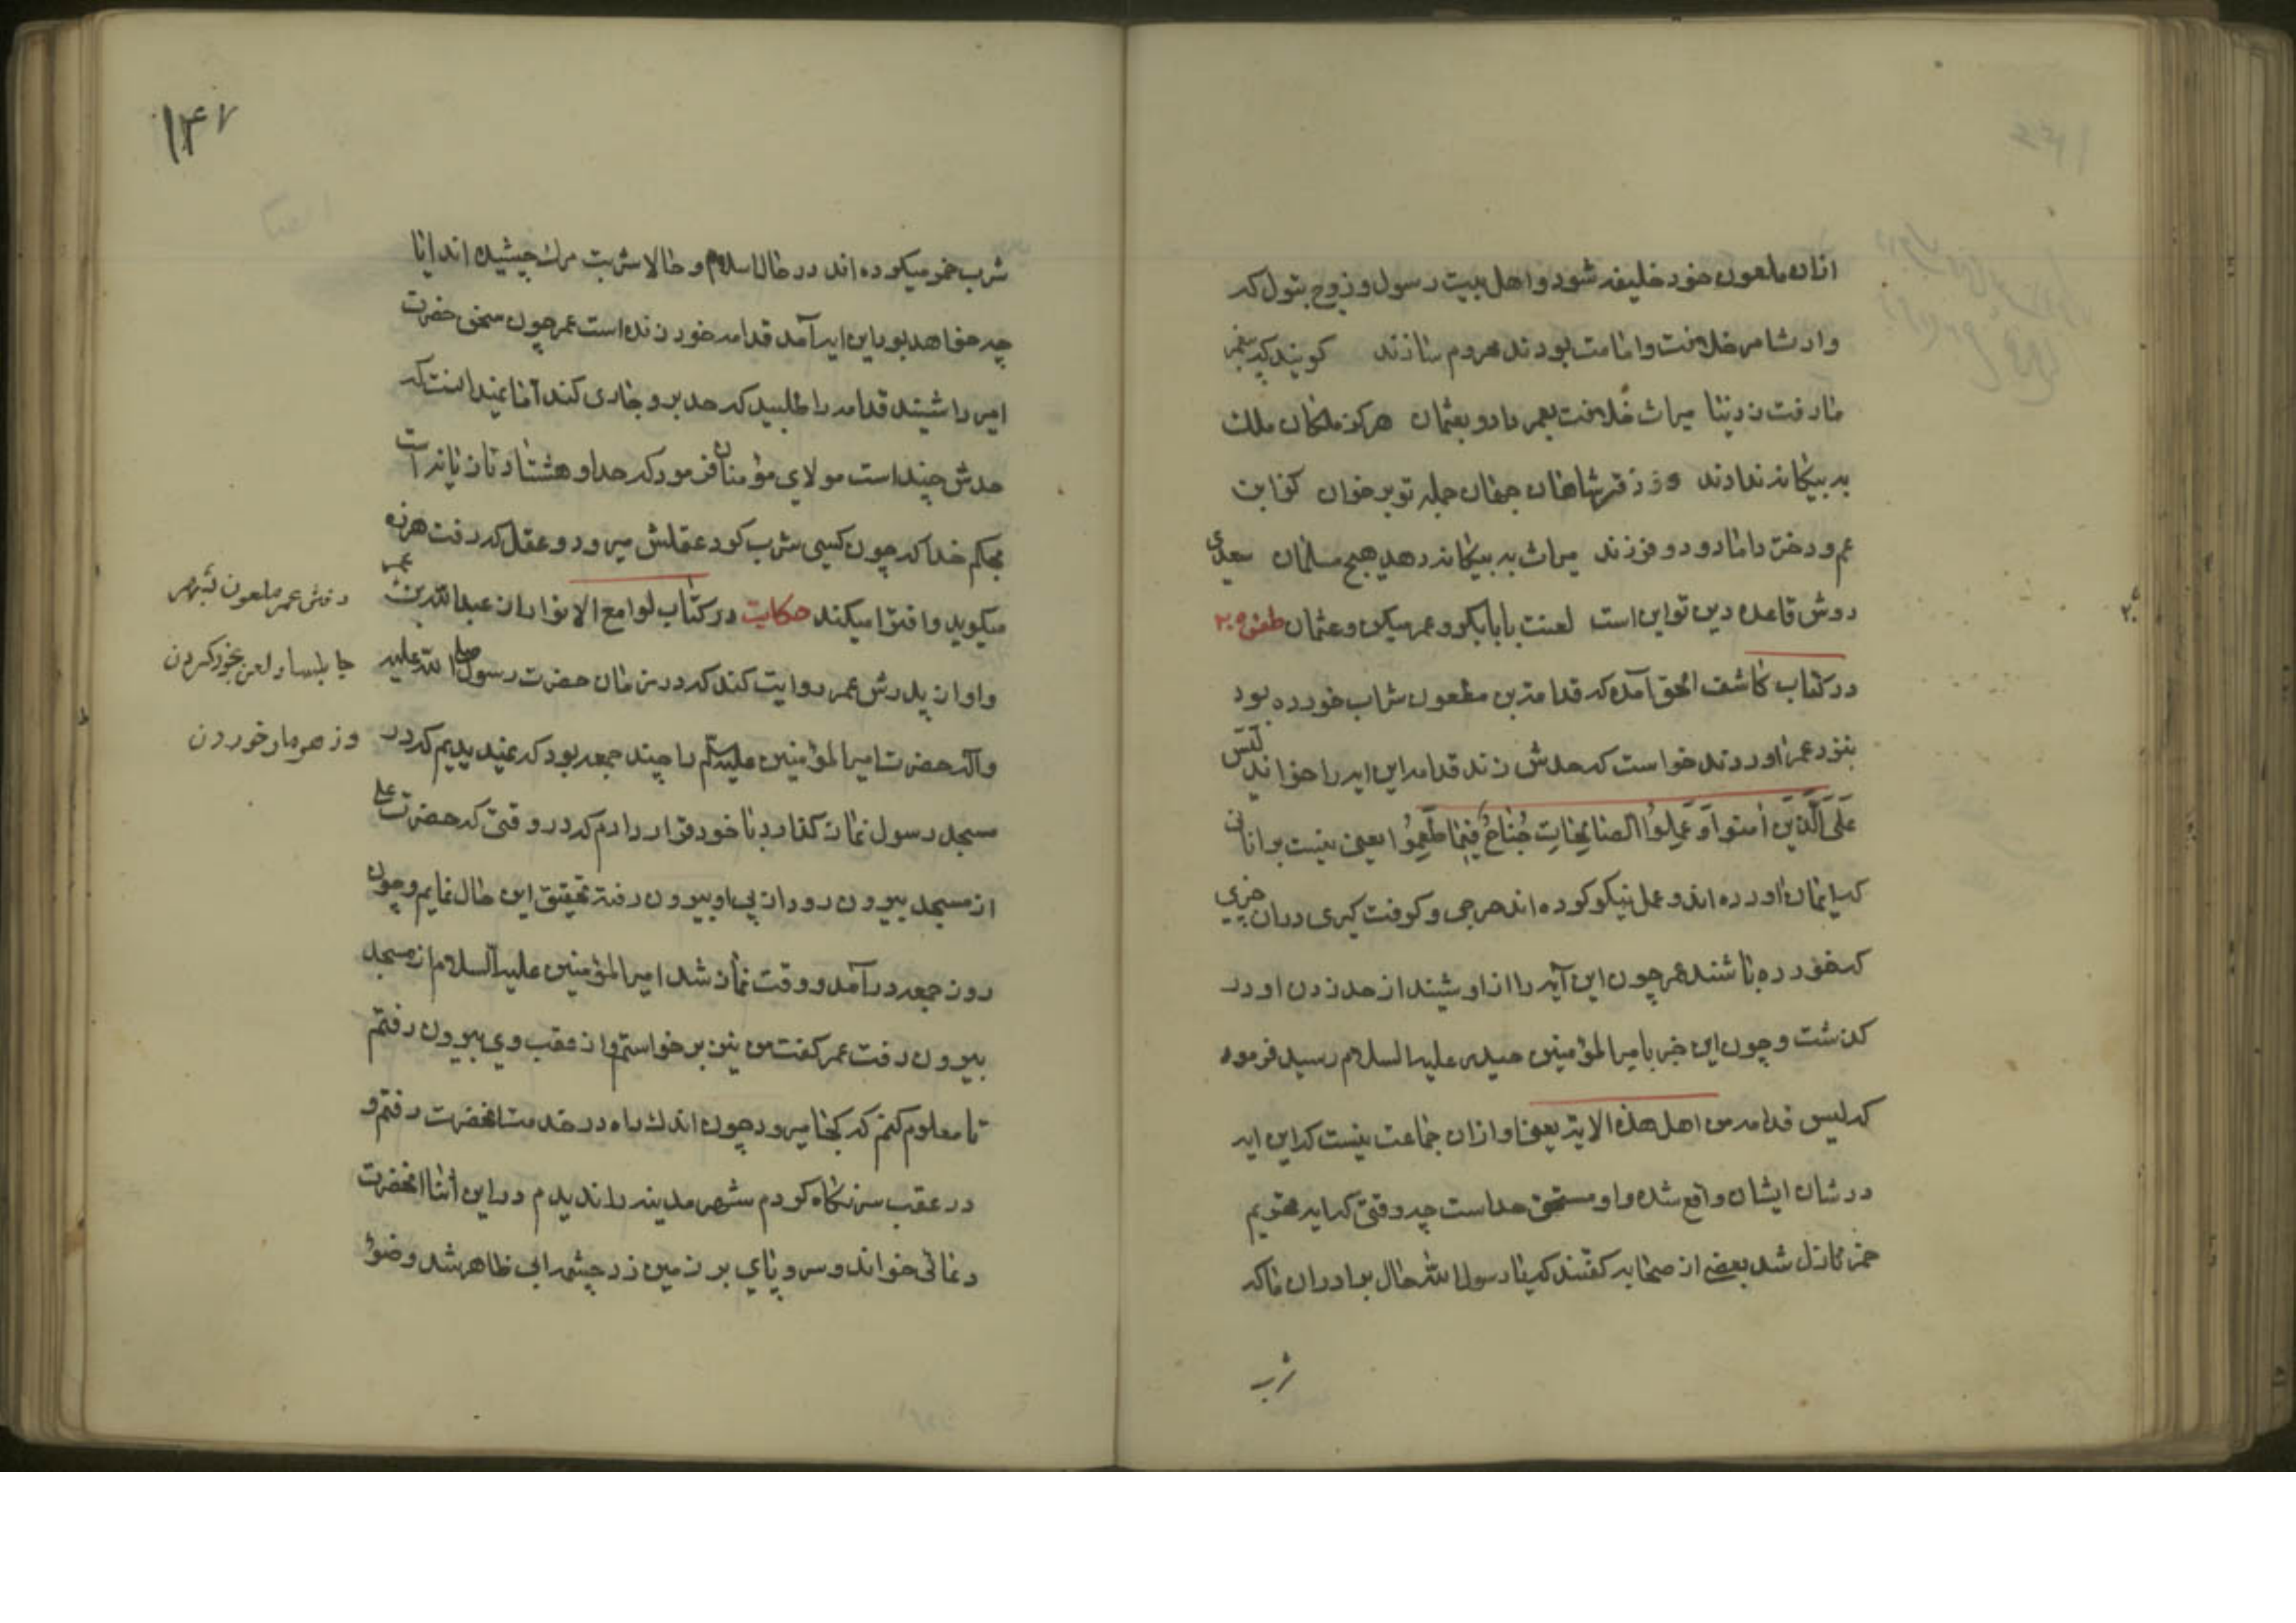 ازان ملعون خود خلیفه شود و اهل بیت رسول و زوج بتول که
وارث امر خلافت و امامت بودند محروم سازند گویند که پیغمبر
ما رفت ز دنیا میراث خلافت بعمر داد و بعثمان هرگز ملکان ملک
به بیگانه ندادند رو دفتر شاهان جهان جمله تو برخوان کز ابن
عم و دختر داماد و دو فرزند میراث به بیگانه دهد هیچ مسلمان سعدی
روش قاعده دین تو این است لعنت بابابکر و عمر میکن و عثمان طعن ۲۰۵
در کتاب کاشف الحق آمده که قدامة بن مظعون شراب خورده بود
بنزد عمر اوردند خواست که حدش زند قدامه این ایه را خواند لیس
عَلَی الَّذینَ اٰمنوا وَ عَمِلُوا الصّالِحٰاتِ جُنٰاحٌ فِیمٰا طَعِمُوا یعنی نیست بر انان
که ایمان اورده اند و عمل نیکو کرده اند حرجی و گرفت گیری در ان چیزی
که خورده باشند عمر چون این آیه را از او شنید از حد زدن او در
گذشت و چون این خبر بامیر المؤمنین حیدر علیه السلام رسید فرمود
که لیس قدامه من اهل هذه الایة یعنی او ازان جماعت نیست که این ایه
در شان ایشان واقع شده و او مستحق حد است چه وقتی که ایه تحریم
خمر نازل شد بعضی از صحابه گفتند که یا رسول الله حال برادران ما که
شرب
۱۴۷
شرب خمر میکرده اند در حال اسلام و حالا شربت مرگ چشیده اند ایا
چه خواهد بود این ایه آمد قدامه خود زنده است عمر چون سخن حضرت
امیر را شنید قدامه را طلبید که حد بر و جاری کند اما نمیدانست که
حدش چند است مولای مؤمنان فرمود که حد او هشتاد تازیانه است
بحکم خدا که چون کسی شرب کرد عقلش میرود و عقل که رفت هرزه
میگوید و افترا میکند حکایت در کتاب لوامع الانوار از عبدالله بن عمر
و او از پدرش عمر روایت کند که در زمان حضرت رسول صلی الله علیه
و آله حضرت امیر المؤمنین علیه السلام را چند جمعه بود که نمیدیدیم که در
مسجد رسول نماز گذارد با خود قرار دادم که در وقتی که حضرت علی
از مسجد بیرون رود از پی او بیرون رفته تحقیق این حال نمایم و چون
روز جمعه در آمد و وقت نماز شد امیر المؤمنین علیه السلام از مسجد
بیرون رفت عمر گفت من نیز برخواستم و از عقب وی بیرون رفتم
تا معلوم کنم که کجا میرود چون اندک راه در خدمت انحضرت رفتم و
در عقب سر نگاه کردم شهر مدینه را ندیدم در این اثنا انحضرت
دعائی خواند و سر و پای بر زمین زد چشمه ابی ظاهر شد وضو
رفتن عمر ملعون بشهر
جابلسا و لعن بخود کردن
و زهر مار خوردن